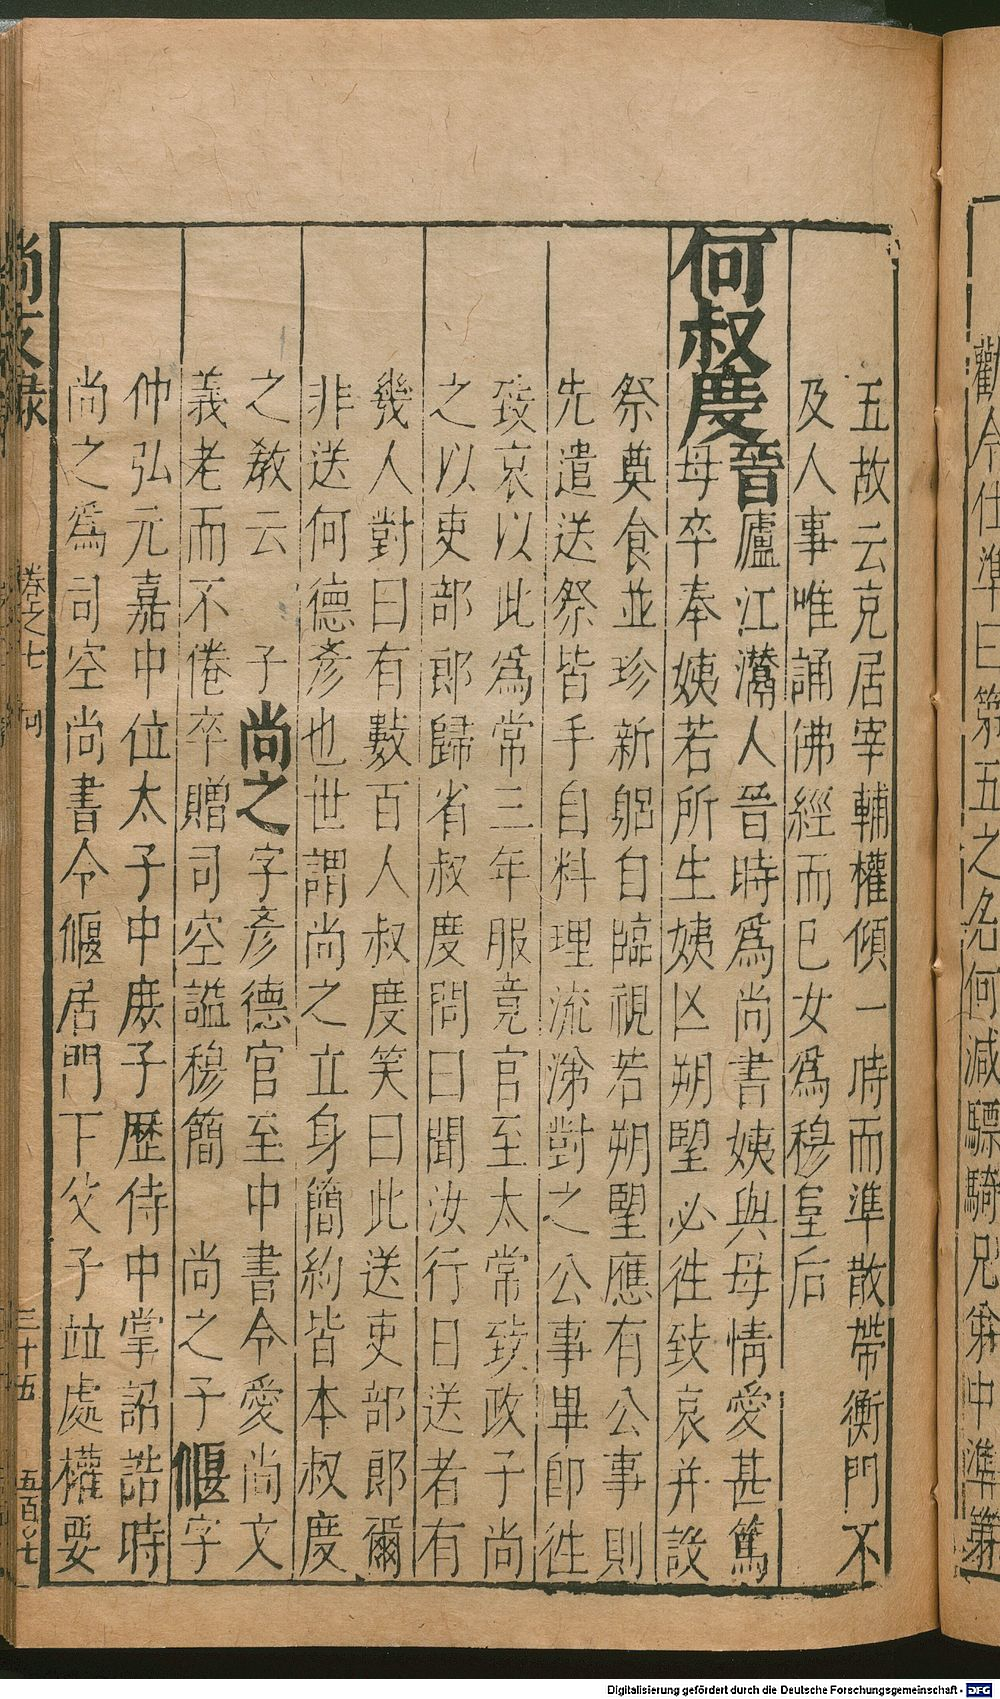 勸令仕準曰第五之名何減驃騎兄弟中準第
五故云克居宰輔權傾一時而準散帶衡門不
及人事唯誦佛經而已女爲穆皇后
何叔慶晉廬江灊人晉時爲尚書姨與母情愛甚篤
母卒奉姨若所生姨亡朔朢必徃致哀并設
祭奠食並珍新躬自臨視若朔朢應有公事則
先遣送祭皆手自料理流涕對之公事畢卽徃
致哀以此爲常三年服竟官至太常致政子尚
之以吏部郎歸省叔慶問曰聞汝行日送者有
幾人對曰有數百人叔慶笑曰此送吏部郎爾
非送何德彥也世謂尚之立身簡約皆本叔慶
之敎云　子尚之字彥德官至中書令愛尚文
義老而不倦卒贈司空謚穆簡　尚之子偃字
仲弘元嘉中位太子中庻子歷侍中掌詔誥時
尚之爲司空尚書令偃居門下父子竝處權要
尚友錄　卷之七　何　三十五　五百七
Digitalisierung gefördert durch die Deutsche Forschungsgemeinschaft - DFG